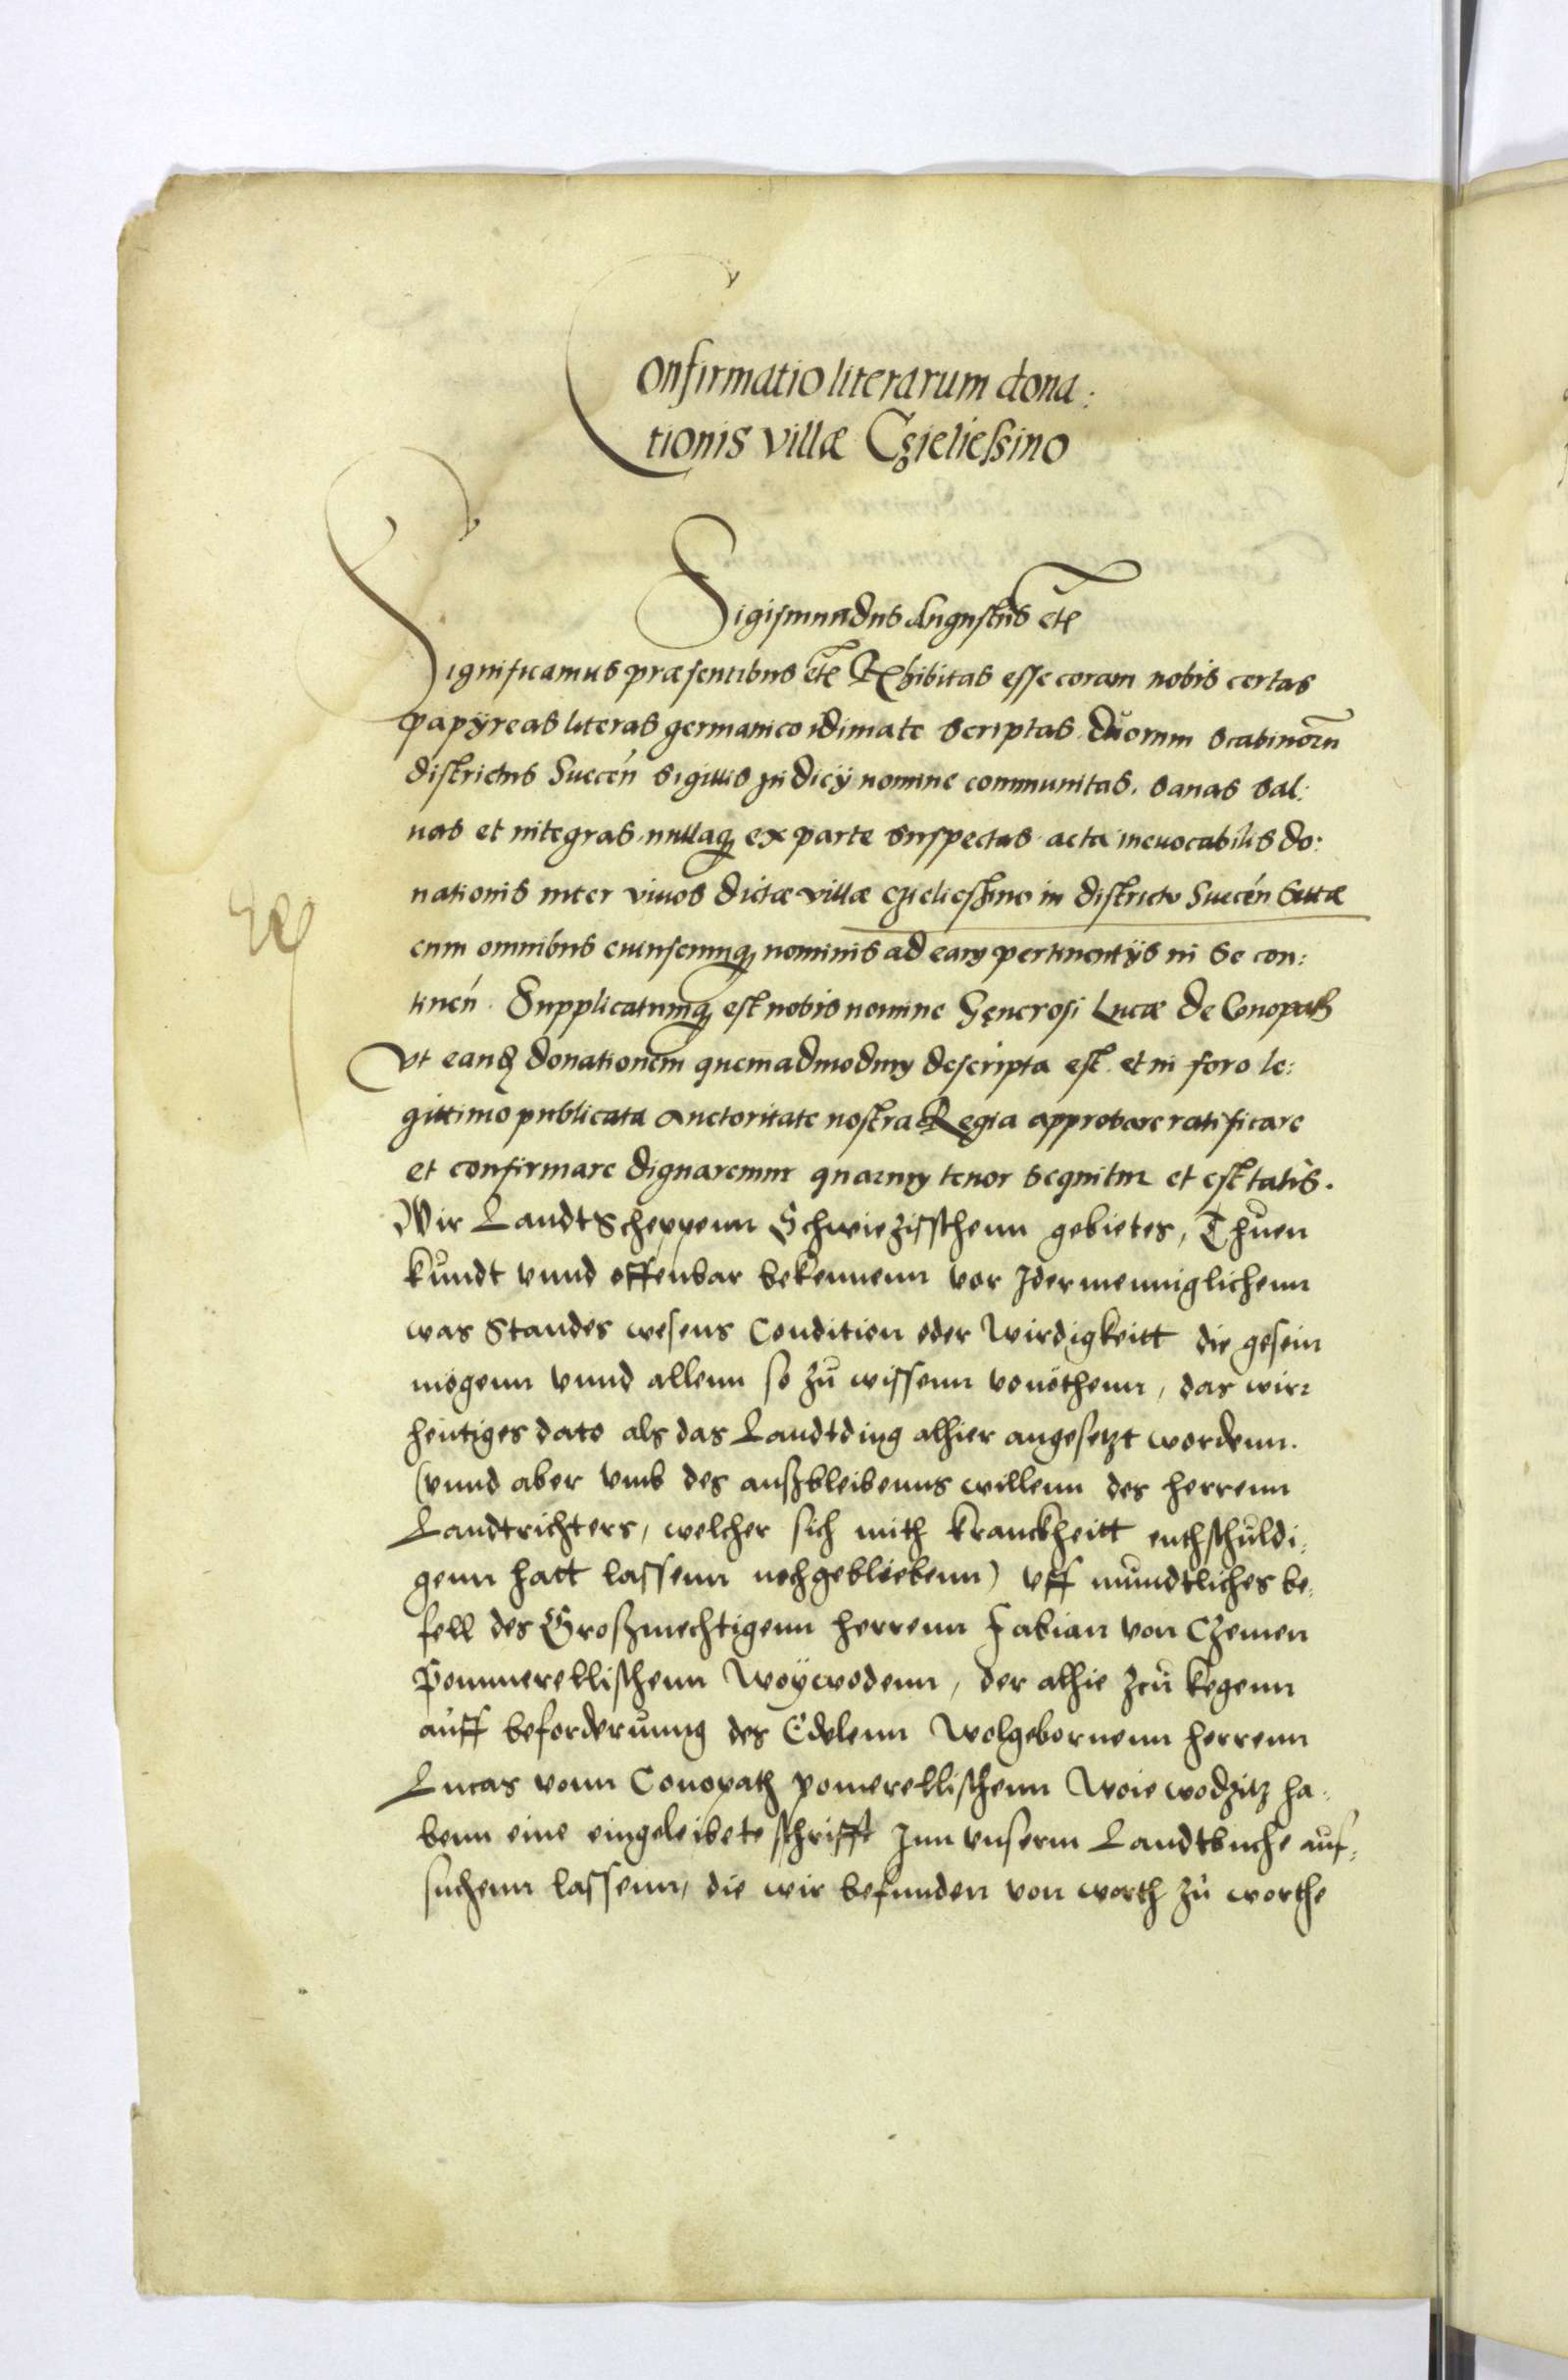 Confirmatio literarum dona:
tionis villæ Czieliessino
Sigismundus Augustus etc
Significamus præsentibus etc Exhibitas esse coram nobis certas
papÿreas literas germanico idimate scriptas duorum scabinorum
districtus Suecen̄ sigillis Judicÿ nomine communitas. sanas sal:
uas et integras nullaq; ex parte suspectas acta ineuocabilis do:
nationis inter viuos dictæ villæ Czieliessino in districto Suecen̄ sittæ
cum omnibus cuiuscumq; nominis ad eam pertinentÿs in se con:
tinen̄. Supplicatumq; est nobis nomine Generosi Lucæ de Conopath
Vt eand; donationem quemadmodum descripta est et in foro le:
gittimo publicata auctoritate nostra Regia approbare ratificare
et confirmare dignaremur quarum tenor sequitur et est talis.
Wir Landtscheppenn Schwiezisschenn gebietes, Thuen
kundt vnnd offenbar bekennenn vor Idermenniglichenn
was Standes wesens Condition oder Wirdigkeitt die gesein
mögenn vnnd allenn so zu wissenn vonöthenn, das wir
heutiges dato als das Landtding alhier angesetzt wordenn.
(vnnd aber vmb des auszbleibenns willenn des herrenn
Landtrichters, welcher sich mith kranckheitt enthschuldi:
genn hatt lassenn nochgebliebenn) vff mundtliches be:
fell des Groszmechtigenn herrenn Fabian von Czemen
Pommerellischenn Woÿwodenn, der alhie zcu kegenn
auff beforderunng des Edelenn Wolgebornenn herrenn
Lucas vonn Conopath pomerellischenn Woiewodzitz ha:
benn eine eingeleibete schrifft Inn vnserm Landtbuche auf:
suchenn lassenn, die wir befunden von worth zu worthe